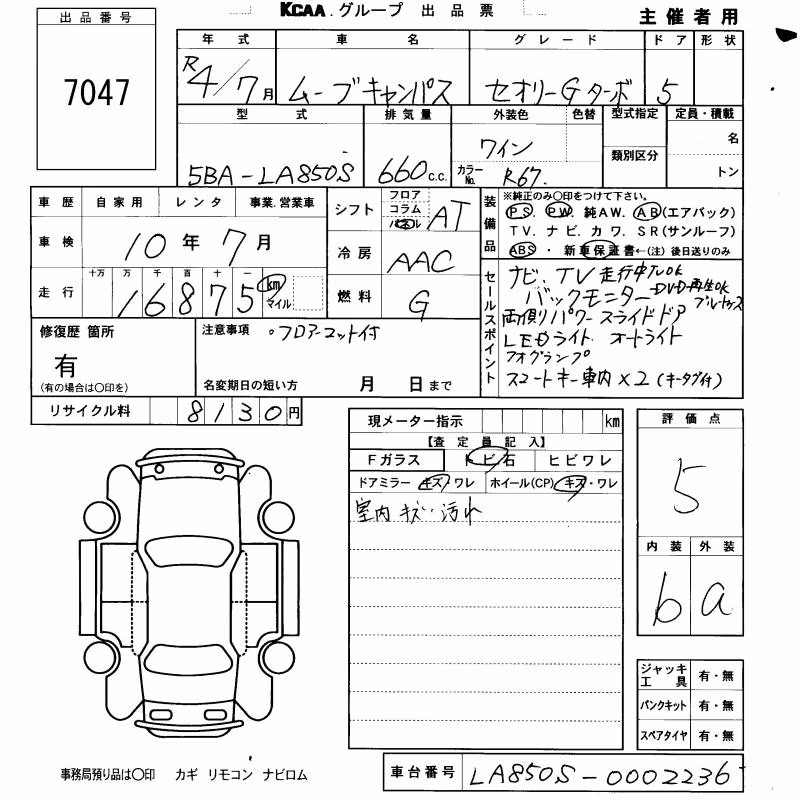 KCAA.グループ 出品票
主催者用
出品番号
7047
年式 車名 グレード ドア 形状
R4/7月 ムーブキャンバス セオリーGターボ 5
型式 排気量 外装色 色替 型式指定 定員・積載
5BA-LA850S 660c.c. ワイン 名
カラーNo. R67. 類別区分 トン
車歴 自家用 レンタ 事業.営業車
車検 10年7月
走行 十万 万 千 百 十 一
16875 km マイル
シフト フロア コラム パネル AT
冷房 AAC
燃料 G
装備品
※純正のみ〇印をつけて下さい。
PS. PW. 純AW. AB(エアバック)
TV. ナビ. カワ. SR(サンルーフ)
ABS・新車保証書←(注)後日送りのみ
セールスポイント
ナビ、TV 走行中TVOK
バックモニター DVD再生OK ブルートゥース
両側パワースライドドア
LEDライト オートライト
フォグランプ
スマートキー車内×2(キータグ付)
修復歴 箇所
有
(有の場合は〇印を)
注意事項 ・フロアーマット付
名変期日の短い方 月 日まで
リサイクル料 8130円
現メーター指示 km
【査定員記入】
Fガラス トビ石 ヒビワレ
ドアミラー キズ・ワレ ホイール(CP) キズ・ワレ
室内 キズ・汚れ
評価点
5
内装 外装
b a
ジャッキ工具 有・無
パンクキット 有・無
スペアタイヤ 有・無
事務局預り品は〇印 カギ リモコン ナビロム
車台番号 LA850S-0002236